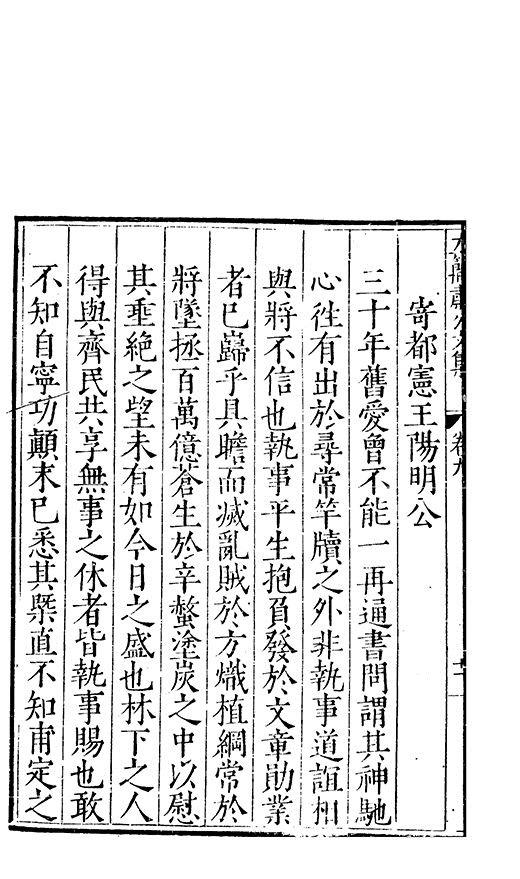 寄都憲王陽明公
三十年舊愛曾不能一再通書問謂其神馳
心徃有出於尋常竿牘之外非執事道誼相
與將不信也執事平生抱負發於文章勛業
者已巋乎具瞻而滅亂賊於方熾植綱常於
將墜拯百萬億蒼生於辛螫塗炭之中以慰
其垂絶之望未有如今日之盛也林下之人
得與齊民共享無事之休者皆執事賜也敢
不知自寧功顛末已悉其槩直不知甫定之